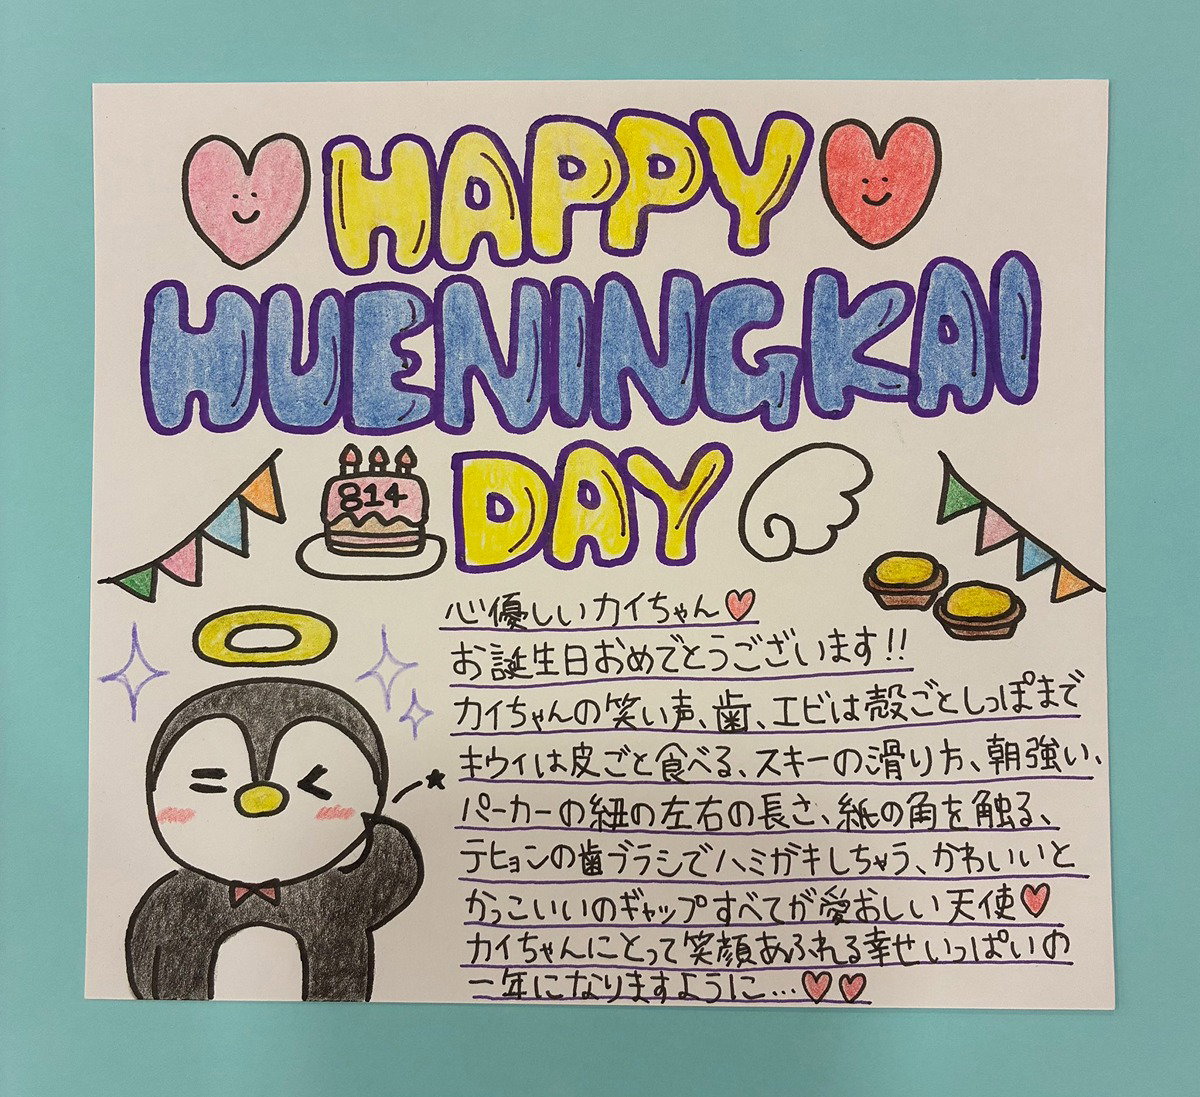 HAPPY
HUENINGKAI
814
DAY
心優しいカイちゃん♥
お誕生日おめでとうございます!!
カイちゃんの笑い声、歯、エビは殻ごとしっぽまで
キウィは皮ごと食べる、スキーの滑り方、朝強い、
パーカーの紐の左右の長さ、紙の角を触る、
テヒョンの歯ブラシでハミガキしちゃう、かわいいと
かっこいいのギャップすべてが愛おしい天使♥
カイちゃんにとって笑顔あふれる幸せいっぱいの
一年になりますように…♥♥